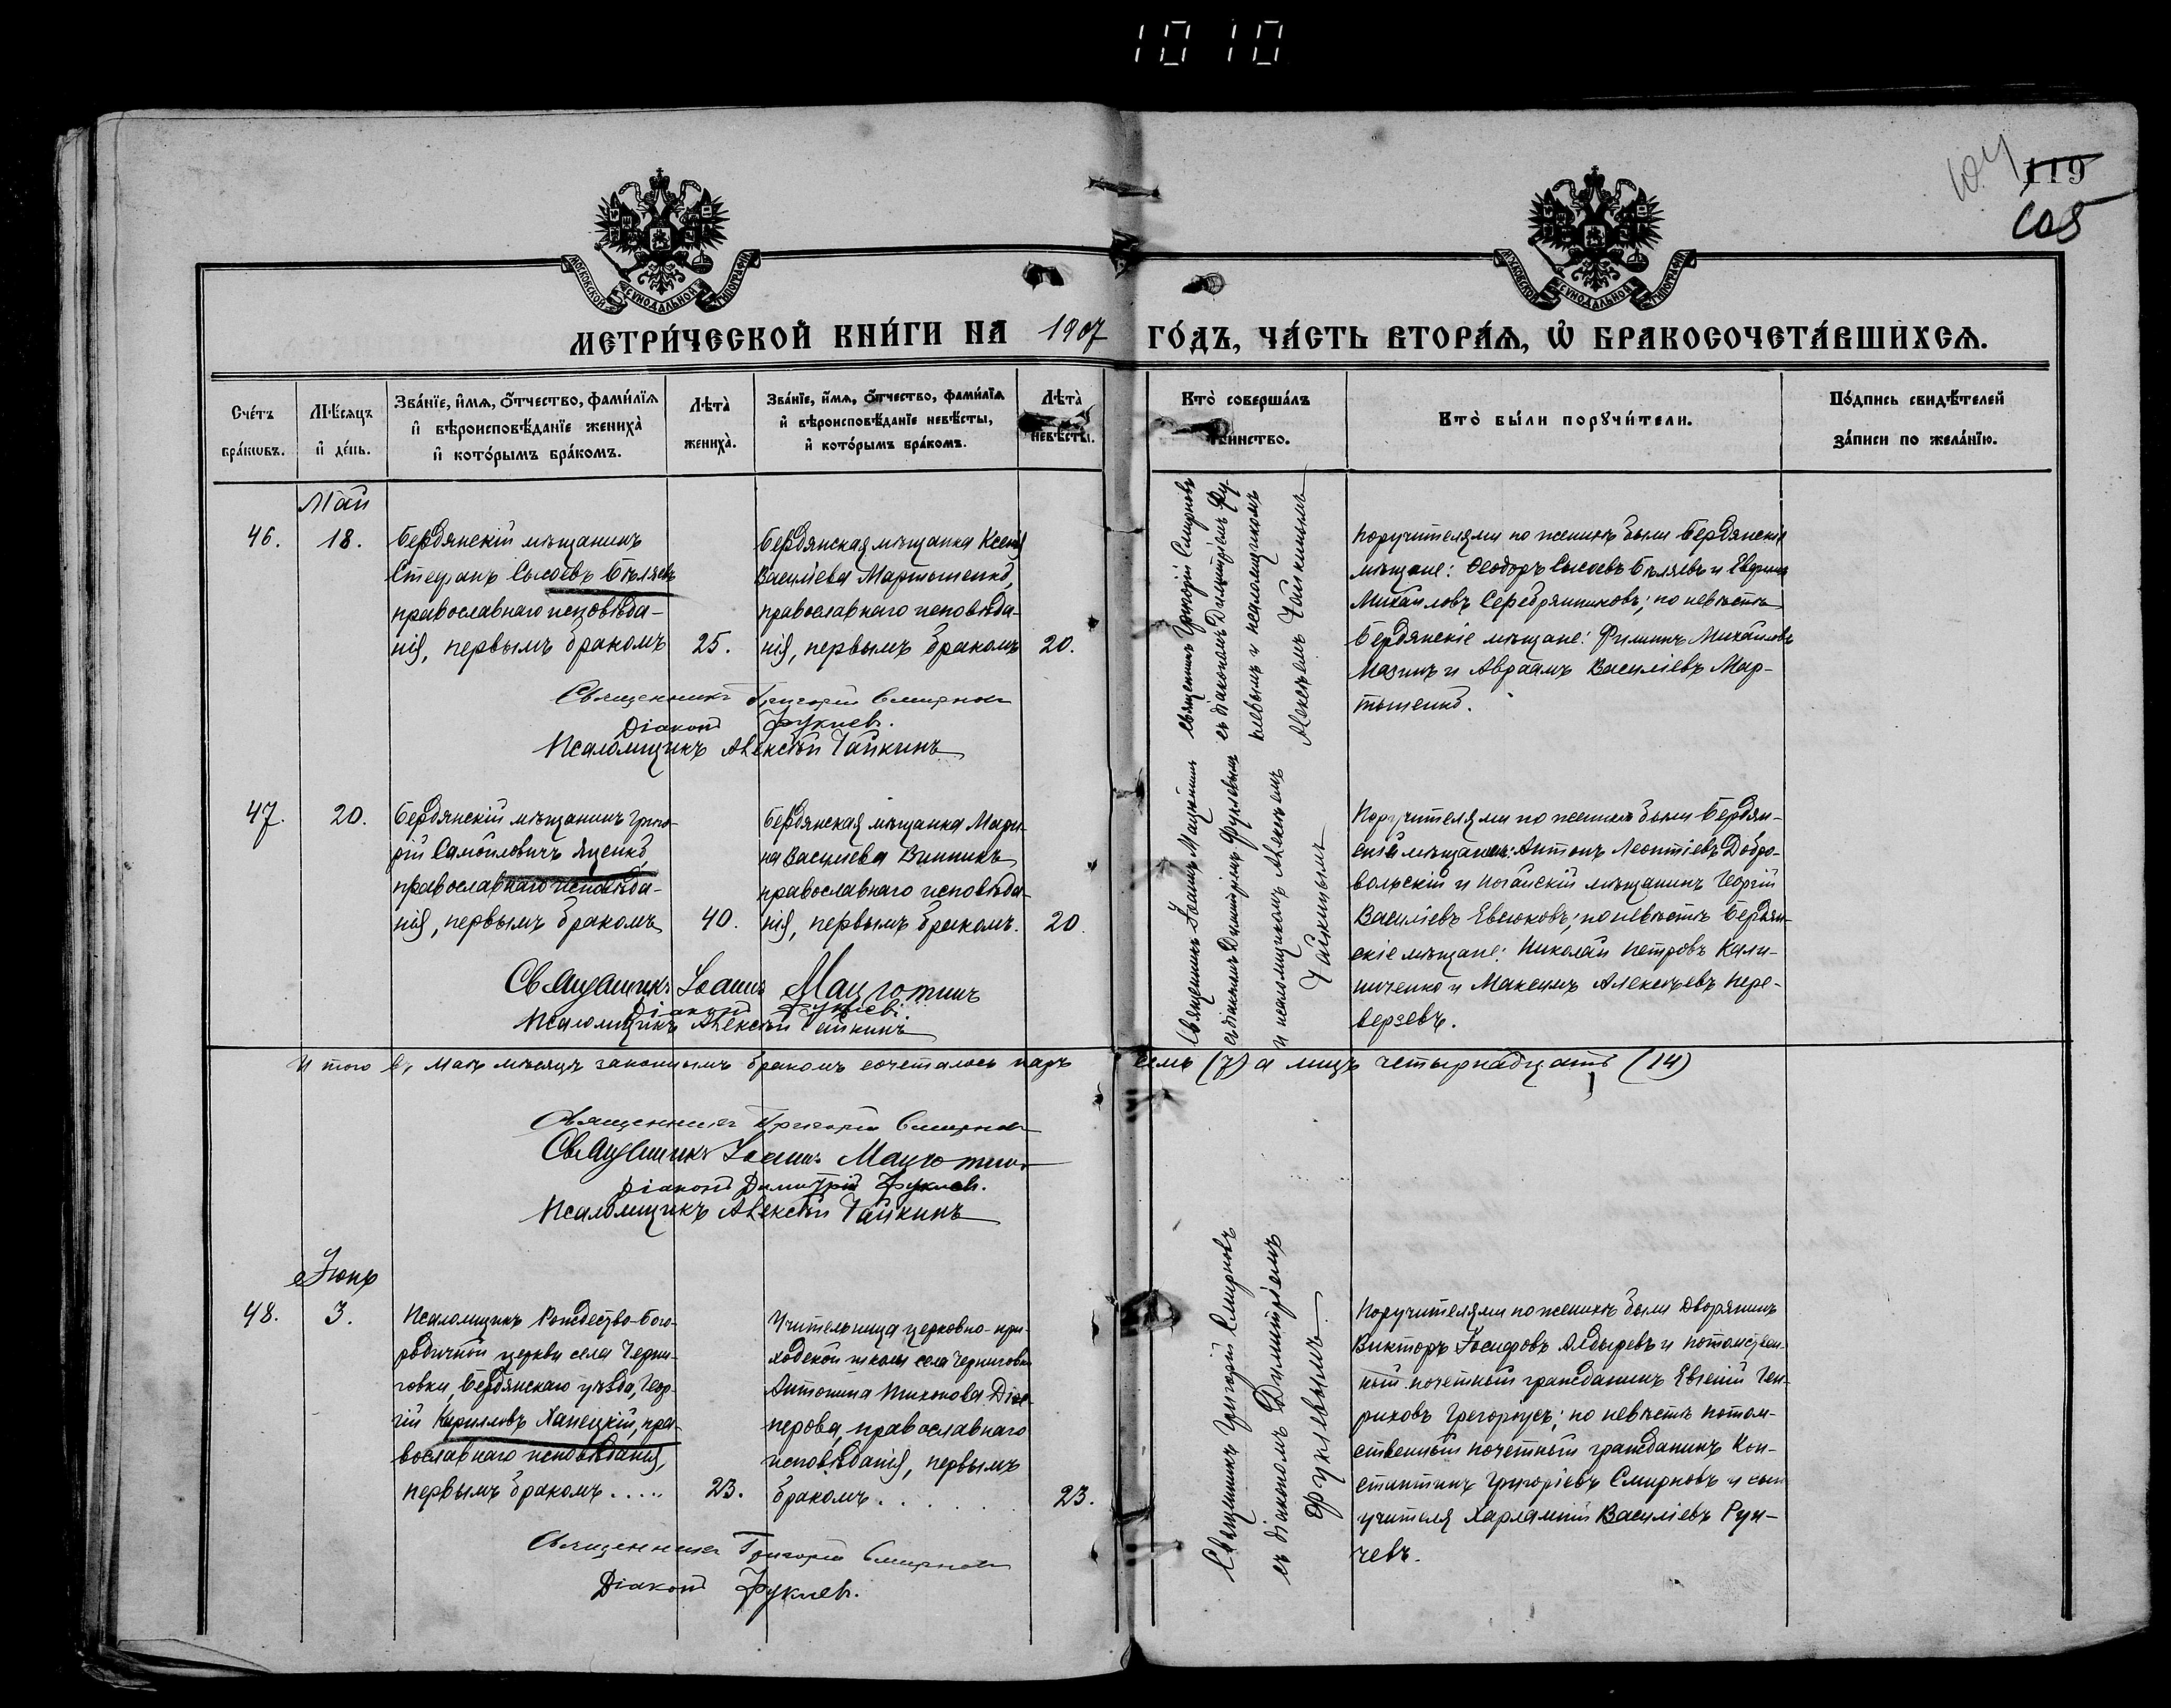 1010
119
105
МОСКОВСКОЙ СѴНОДАЛЬНОЙ ТИПОГРАФІИ
МОСКОВСКОЙ СѴНОДАЛЬНОЙ ТИПОГРАФІИ
МЕТРИ́ЧЕСКОЙ КНИ́ГИ НА 1907 ГО́ДЪ, ЧА́СТЬ ВТОРА́Ѧ, Ѡ҆ БРАКОСОЧЕТА́ВШИХСѦ.
Сче́тъ бра́кѡвъ.
Мѣ́сѧцъ и҆ де́нь.
Зва́нїе, и҆́мѧ, ѻ҆́тчество, фами́лїѧ и҆ вѣроисповѣ́данїе жениха̀ и҆ кото́рымъ бра́комъ.
Лѣта̀ жениха̀.
Зва́нїе, и҆́мѧ, ѻ҆́тчество, фами́лїѧ и҆ вѣроисповѣ́данїе невѣ́сты, и҆ кото́рымъ бра́комъ.
Лѣта̀ невѣ́сты.
Кто̀ соверша́лъ таинство.
Кто̀ бы́ли порꙋчи́тели.
По́дпись свидѣ́телей за́писи по жела́нїю.
Май
46.
18.
Бердянскій мѣщанинъ
Стефанъ Сысоевъ Бѣляевъ
православнаго исповѣда-
нія, первымъ бракомъ
25.
Бердянская мѣщанка Ксенія
Василіева Мартыненко,
православнаго исповѣда-
нія, первымъ бракомъ
20.
Священникъ Григорій Смирновъ
съ діакономъ Димитріемъ Фу-
клевымъ и псаломщикомъ
Алексѣемъ Чайкинымъ
Поручителями по женихѣ были Бердянскіе
мѣщане: Ѳеодоръ Сысоевъ Бѣляевъ и
Михаиловъ Серебрянниковъ; по невѣстѣ
Бердянскіе мѣщане: Филиппъ Михаиловъ
Мазинъ и Авраамъ Василіевъ Мар-
тыненко.
Священникъ Григорій Смирновъ
Діаконъ Фуклевъ.
Псаломщикъ Алексѣй Чайкинъ
47.
20.
Бердянскій мѣщанинъ Григо-
рій Самойловичъ Яценко,
православнаго исповѣда-
нія, первымъ бракомъ
40.
Бердянская мѣщанка Мари-
на Василіева Винникъ
православнаго исповѣда-
нія, первымъ бракомъ.
20.
Священникъ Іоаннъ
съ діакономъ Димитріемъ Фуклевымъ
и псаломщикомъ Алексѣемъ
Чайкинымъ
Поручителями по женихѣ были Бердян-
скій мѣщанинъ: Антонъ Леонтіевъ Добро-
вольскій и Ногайскій мѣщанинъ Георгій
Василіевъ Евсюковъ; по невѣстѣ Бердян-
скіе мѣщане: Николай Петровъ Кали-
ниченко и Максимъ Алексѣевъ Пере-
верзевъ.
Священникъ Іоаннъ
Діаконъ Фуклевъ.
Псаломщикъ Алексѣй Чайкинъ
Итого въ Маѣ мѣсяцѣ законнымъ бракомъ сочеталось паръ семь (7) а лицъ четырнадцать (14)
Священникъ Григорій Смирновъ
Священникъ Іоаннъ
Діаконъ Димитрій Фуклевъ.
Псаломщикъ Алексѣй Чайкинъ
Іюнь
48.
3.
Псаломщикъ Рождество-Бого-
родичной церкви села Черни-
говки, Бердянскаго уѣзда, Геор-
гій Кирилловъ Ханецкій, пра-
вославнаго исповѣданія,
первымъ бракомъ.....
23.
Учительница церковно-при-
ходской школы села Черниговки
Антонина Тихонова
православнаго
исповѣданія, первымъ
бракомъ.....
23.
Священникъ Григорій Смирновъ
съ діакономъ Димитріемъ
Фуклевымъ
Поручителями по женихѣ были Дворянинъ
Викторъ Іосифовъ и потомствен-
ный почетный гражданинъ Евгеній Ген-
риховъ Грегоріусъ; по невѣстѣ потом-
ственный почетный гражданинъ Кон-
стантинъ Григоріевъ Смирновъ и сынъ
учителя Харлампій Василіевъ Рун-
чевъ.
Священникъ Григорій Смирновъ
Діаконъ Фуклевъ.